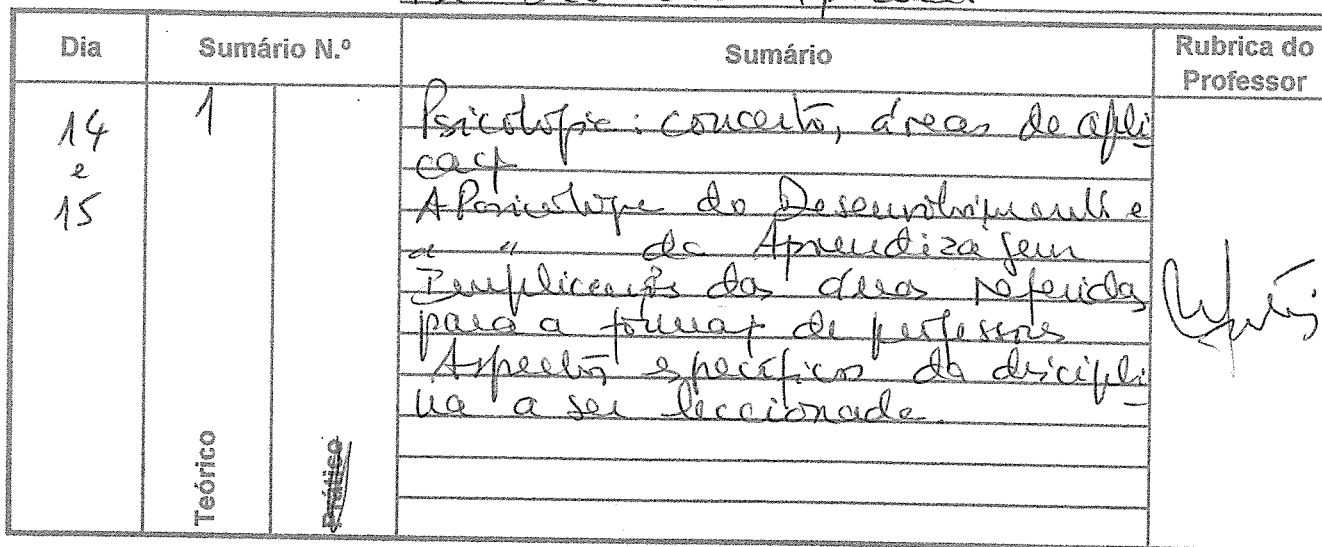 Dia Sumário N.º Sumário Rubrica do Professor
14 e 15
1
Psicologia: conceito, áreas de apli
cação
A Psicologia do Desenvolvimento e
a " da Aprendizagem
Implicações das duas referidas
para a formação de professores
Aspectos específicos da discipli
na a ser leccionada
Teórico
Prático